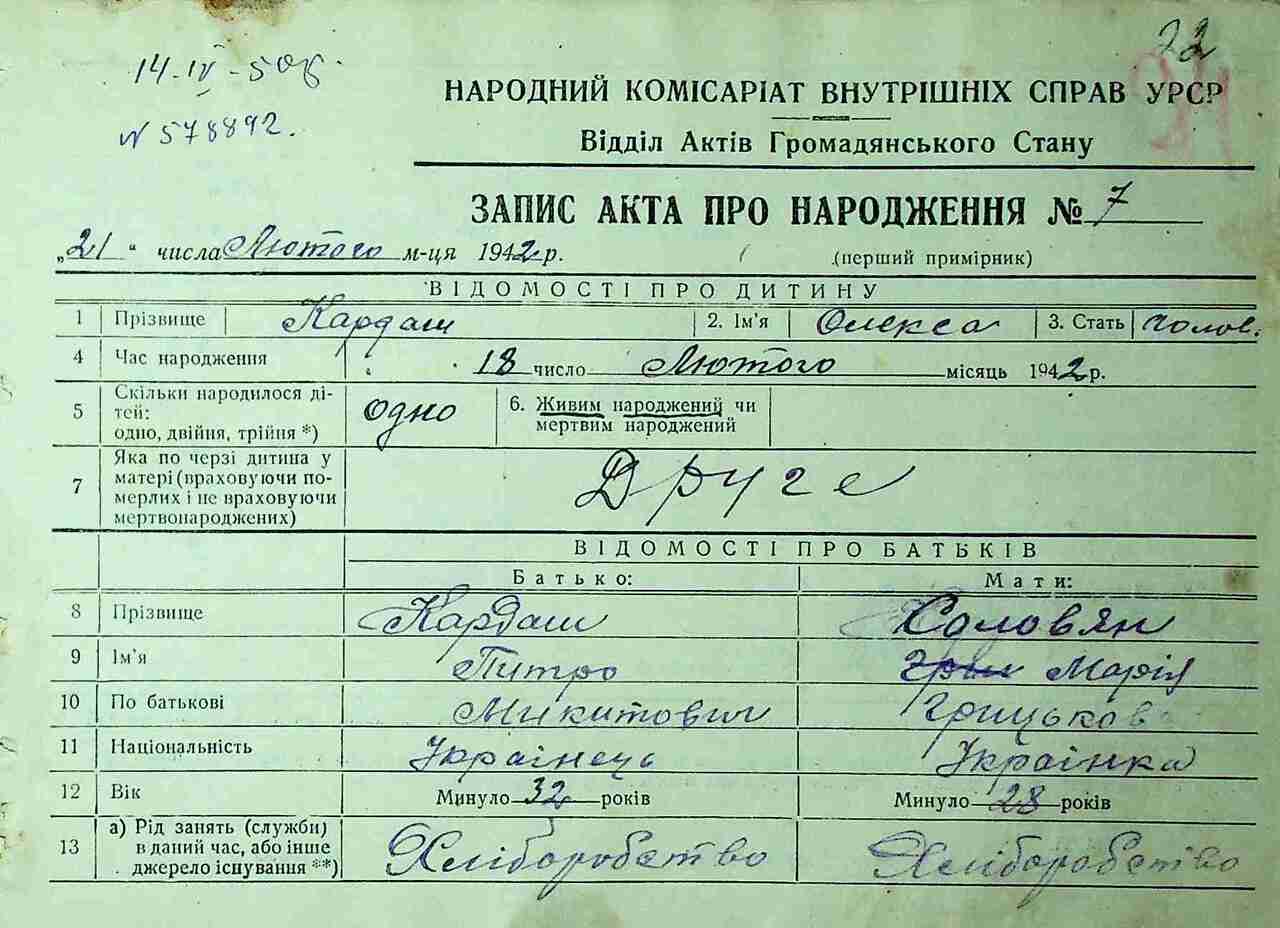 22
14-IV-50г.
N 578892.
НАРОДНИЙ КОМІСАРІАТ ВНУТРІШНІХ СПРАВ УРСР
Відділ Актів Громадянського Стану
ЗАПИС АКТА ПРО НАРОДЖЕННЯ № 7
„21“ числа Лютого м-ця 1942 р.
(перший примірник)
ВІДОМОСТІ ПРО ДИТИНУ
1 Прізвище Кардаш 2. Ім'я Олекса 3. Стать чолов.
4 Час народження 18 число Лютого місяць 1942 р.
5 Скільки народилося ді-
тей:
одно, двійня, трійня *) одно 6. Живим народжений чи
мертвим народжений
7 Яка по черзі дитина у
матері (враховуючи по-
мерлих і не враховуючи
мертвонароджених) Друге
ВІДОМОСТІ ПРО БАТЬКІВ
Батько: Мати:
8 Прізвище Кардаш Соловян
9 Ім'я Питро Марія
10 По батькові Микитович Грицьков
11 Національність Украінець Украінка
12 Вік Минуло 32 років Минуло 28 років
13 а) Рід занять (служби)
в даний час, або інше
джерело існування **) Хліборобство Хліборобство